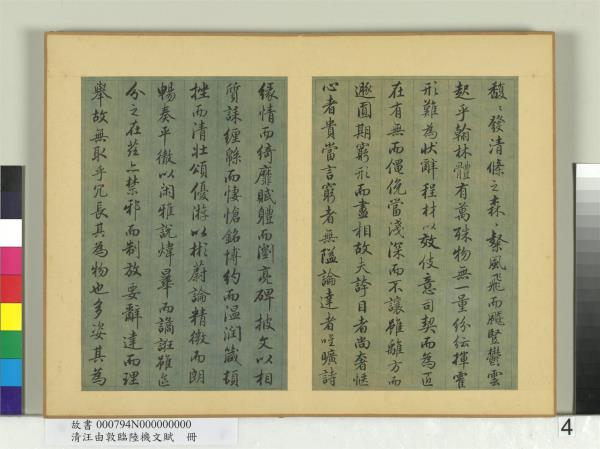 馥〻發清條之森〻粲風飛而飈豎鬱雲
起乎翰林體有萬殊物無一量紛紜揮霍
形難為狀辭程材以效伎意司契而為匠
在有無而僶俛當淺深而不讓雖離方而
遯圓期窮形而盡相故夫誇目者尚奢愜
心者貴當言窮者無隘論達者唯曠詩
緣情而綺靡賦體而瀏亮碑披文以相
質誄纏綿而悽愴銘博約而溫潤箴頓
挫而清壯頌優游以彬蔚論精微而朗
暢奏平徹以閑雅說煒曄而譎誑雖區
分之在茲亦禁邪而制放要辭達而理
舉故無取乎冗長其為物也多姿其為
故書 000794N000000000
清汪由敦臨陸機文賦 冊
4